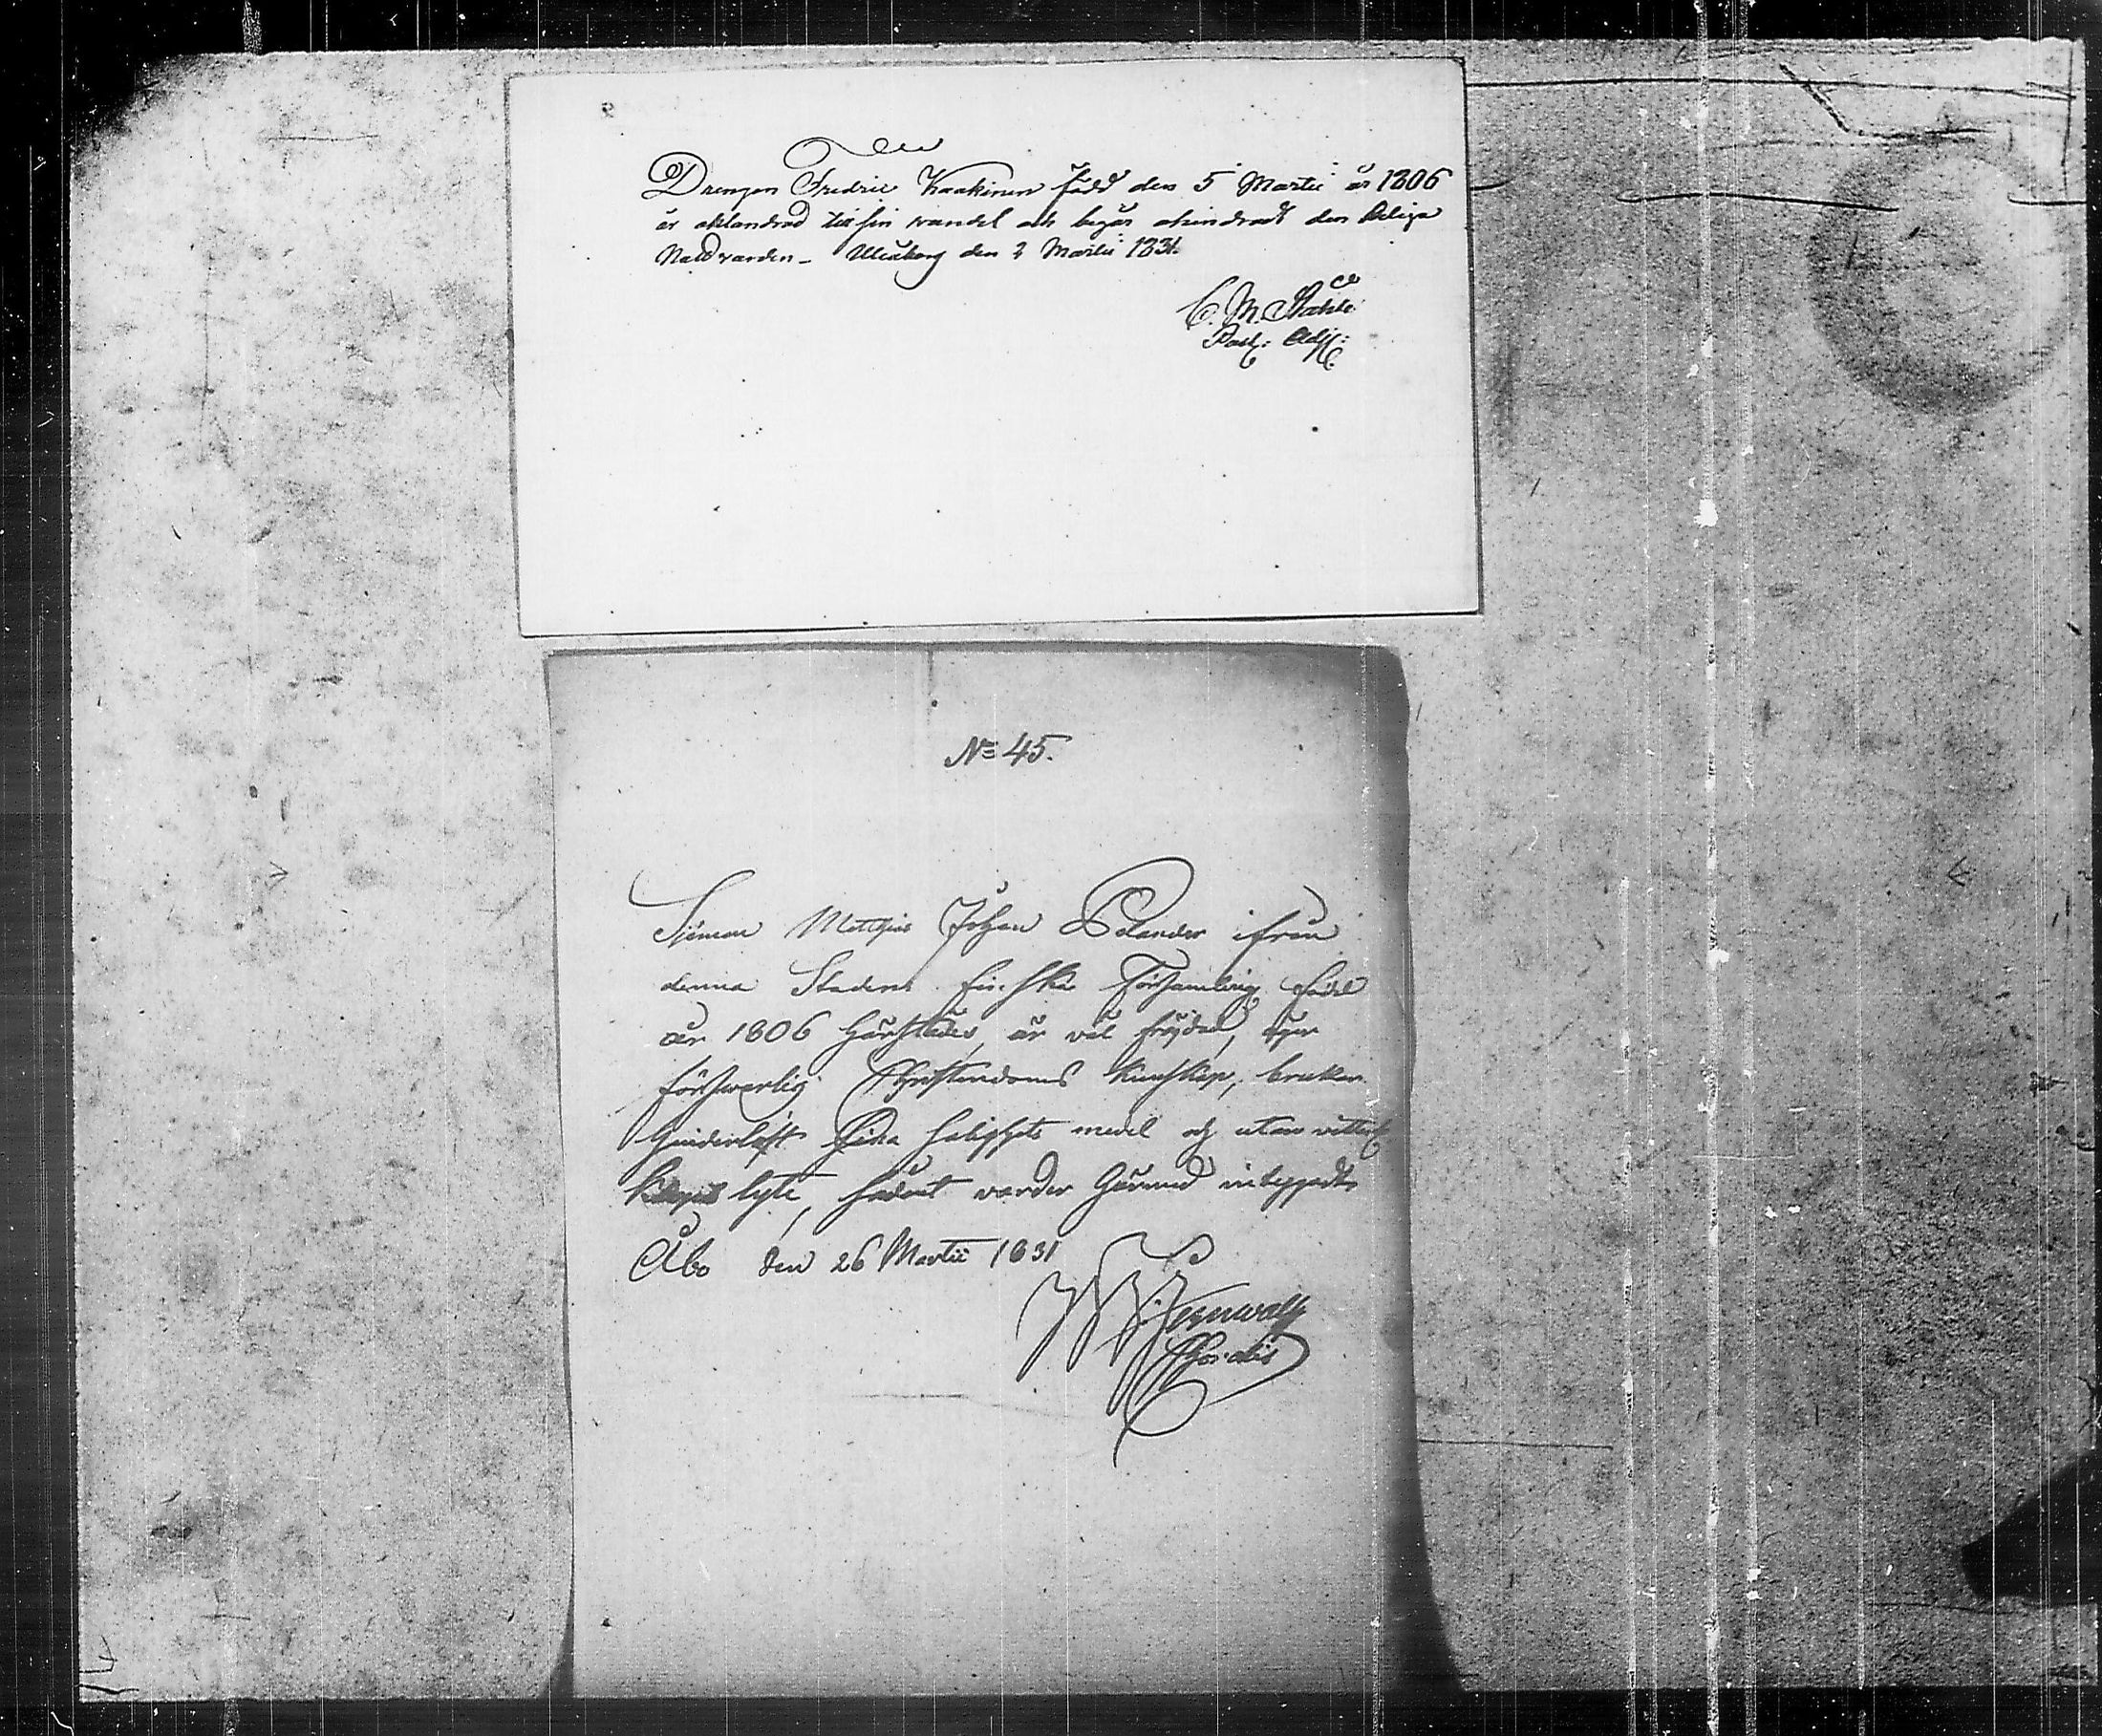 Drengen Fredric Kaakinen född den 5 Martii år 1806
är oklandrad till sin vandel och begår ohindradt den Heliga
Nattvarden_ Uleåborg den 2 Martii 1831.
C. M. Ståhle
Past: Adj:
No 45.
Sjöman Matthias Johan Polander ifrån
denna Stadens finska Församling född
år 1806 härstädes, är väl fräjdad, äger
försvarlig Christendoms kunskap, brukar
hinderlöst sina salighets medel och utan vitterl.
lyte, sådant varder härmed intygadt.
Åbo den 26 Martii 1831